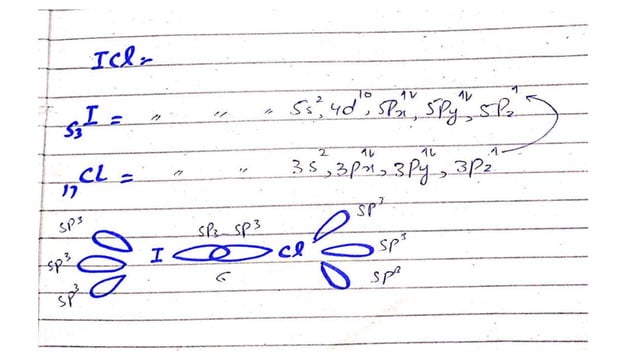 ICl:-
₅₃I = " " " 5s², 4d¹⁰, 5Px¹⇂, 5Py¹⇂, 5Pz¹
₁₇Cl = " " " 3s², 3px¹⇂, 3Py¹⇂, 3Pz¹
sp³ sp³
sp³ sp³ I Cl sp³
sp³ sp³